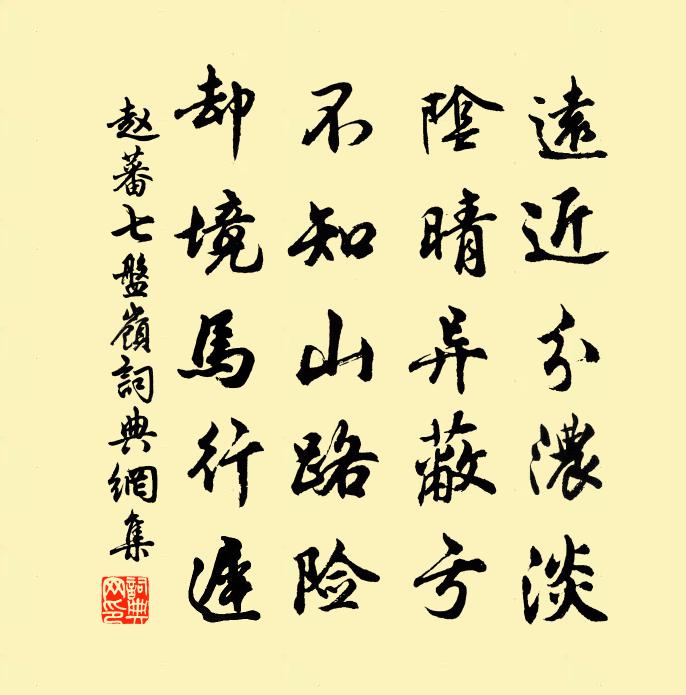 遠近分濃淡
陰晴异蔽亏
不知山路险
却境馬行遲
赵蕃七盤嶺詞典網集
詞典网印